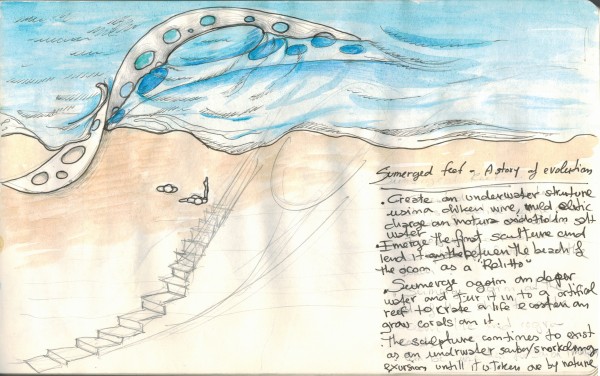 Sumerged feet - A story of evolution
• Create an underwater struture
using chiken wire, mild electric
charge an mature oxidotto in salt
water
• Emerge the first sculture and
lend it between the beach &
the ocean as a "Relitto"
• Sumerge again on deper
water and tur it in to a artifical
reef to krate a life ecosistem an
grow corals on it.
The sculpture continues to exist
as an underwater snorkeling
exursion untill it is taken over by nature